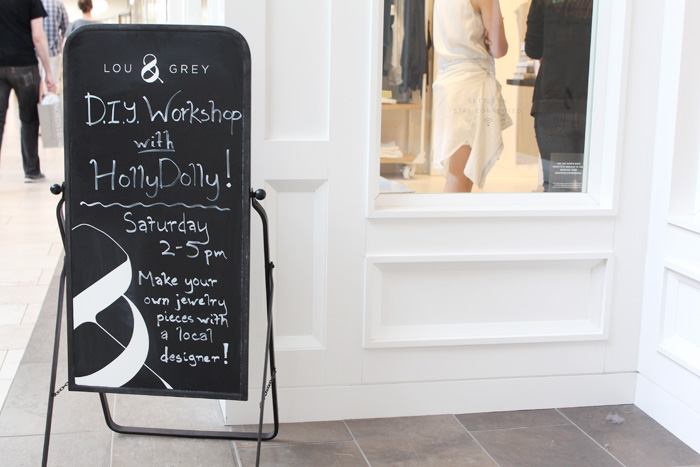 LOU & GREY
D.I.Y. Workshop
with
HollyDolly!
Saturday
2-5pm
Make your
own jewelry
pieces with
a local
designer!